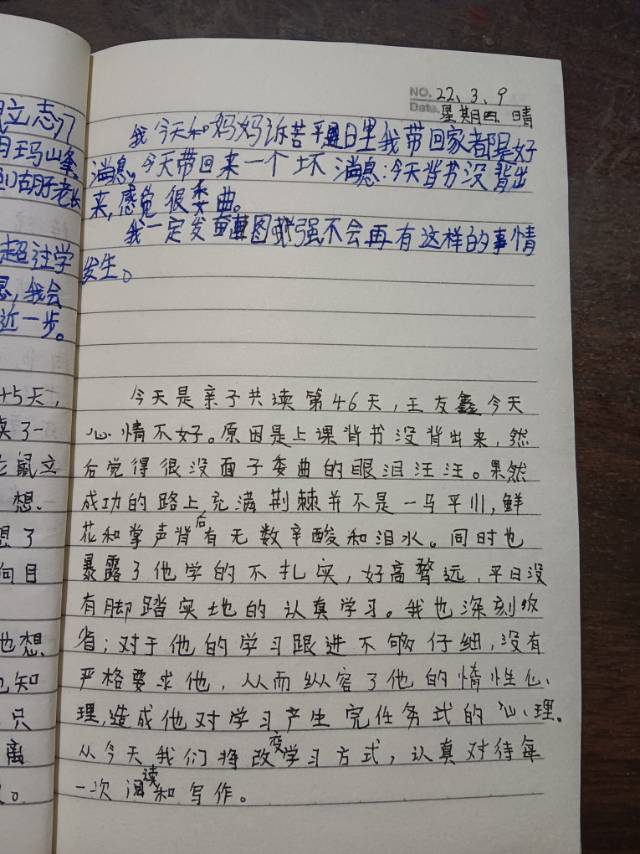 立志了
用玛山条
们胡肝老长
超过学
恳,我会
近一步。
45天,
读了一
鼠立
想.
想了
向目
也想
也知
只
离
NO. 22、3、9
Date. 星期四 晴
我今天和妈妈诉苦平日里我带回家都是好
消息,今天带回来一个坏消息:今天背书没背出
来,感觉很委曲。
我一定发奋图强不会再有这样的事情
发生。
今天是亲子共读第46天,王友鑫今天
心情不好。原因是上课背书没背出来,然
后觉得很没面子委曲的眼泪汪汪。果然
成功的路上充满荆棘并不是一马平川,鲜
花和掌声背后有无数辛酸和泪水。同时也
暴露了他学的不扎实,好高骛远,平日没
有脚踏实地的认真学习。我也深刻收
省;对于他的学习跟进不够仔细,没有
严格要求他,从而纵容了他的惰性心
理,造成他对学习产生完任务式的心理。
从今天我们将改变学习方式,认真对待每
一次阅读和写作。